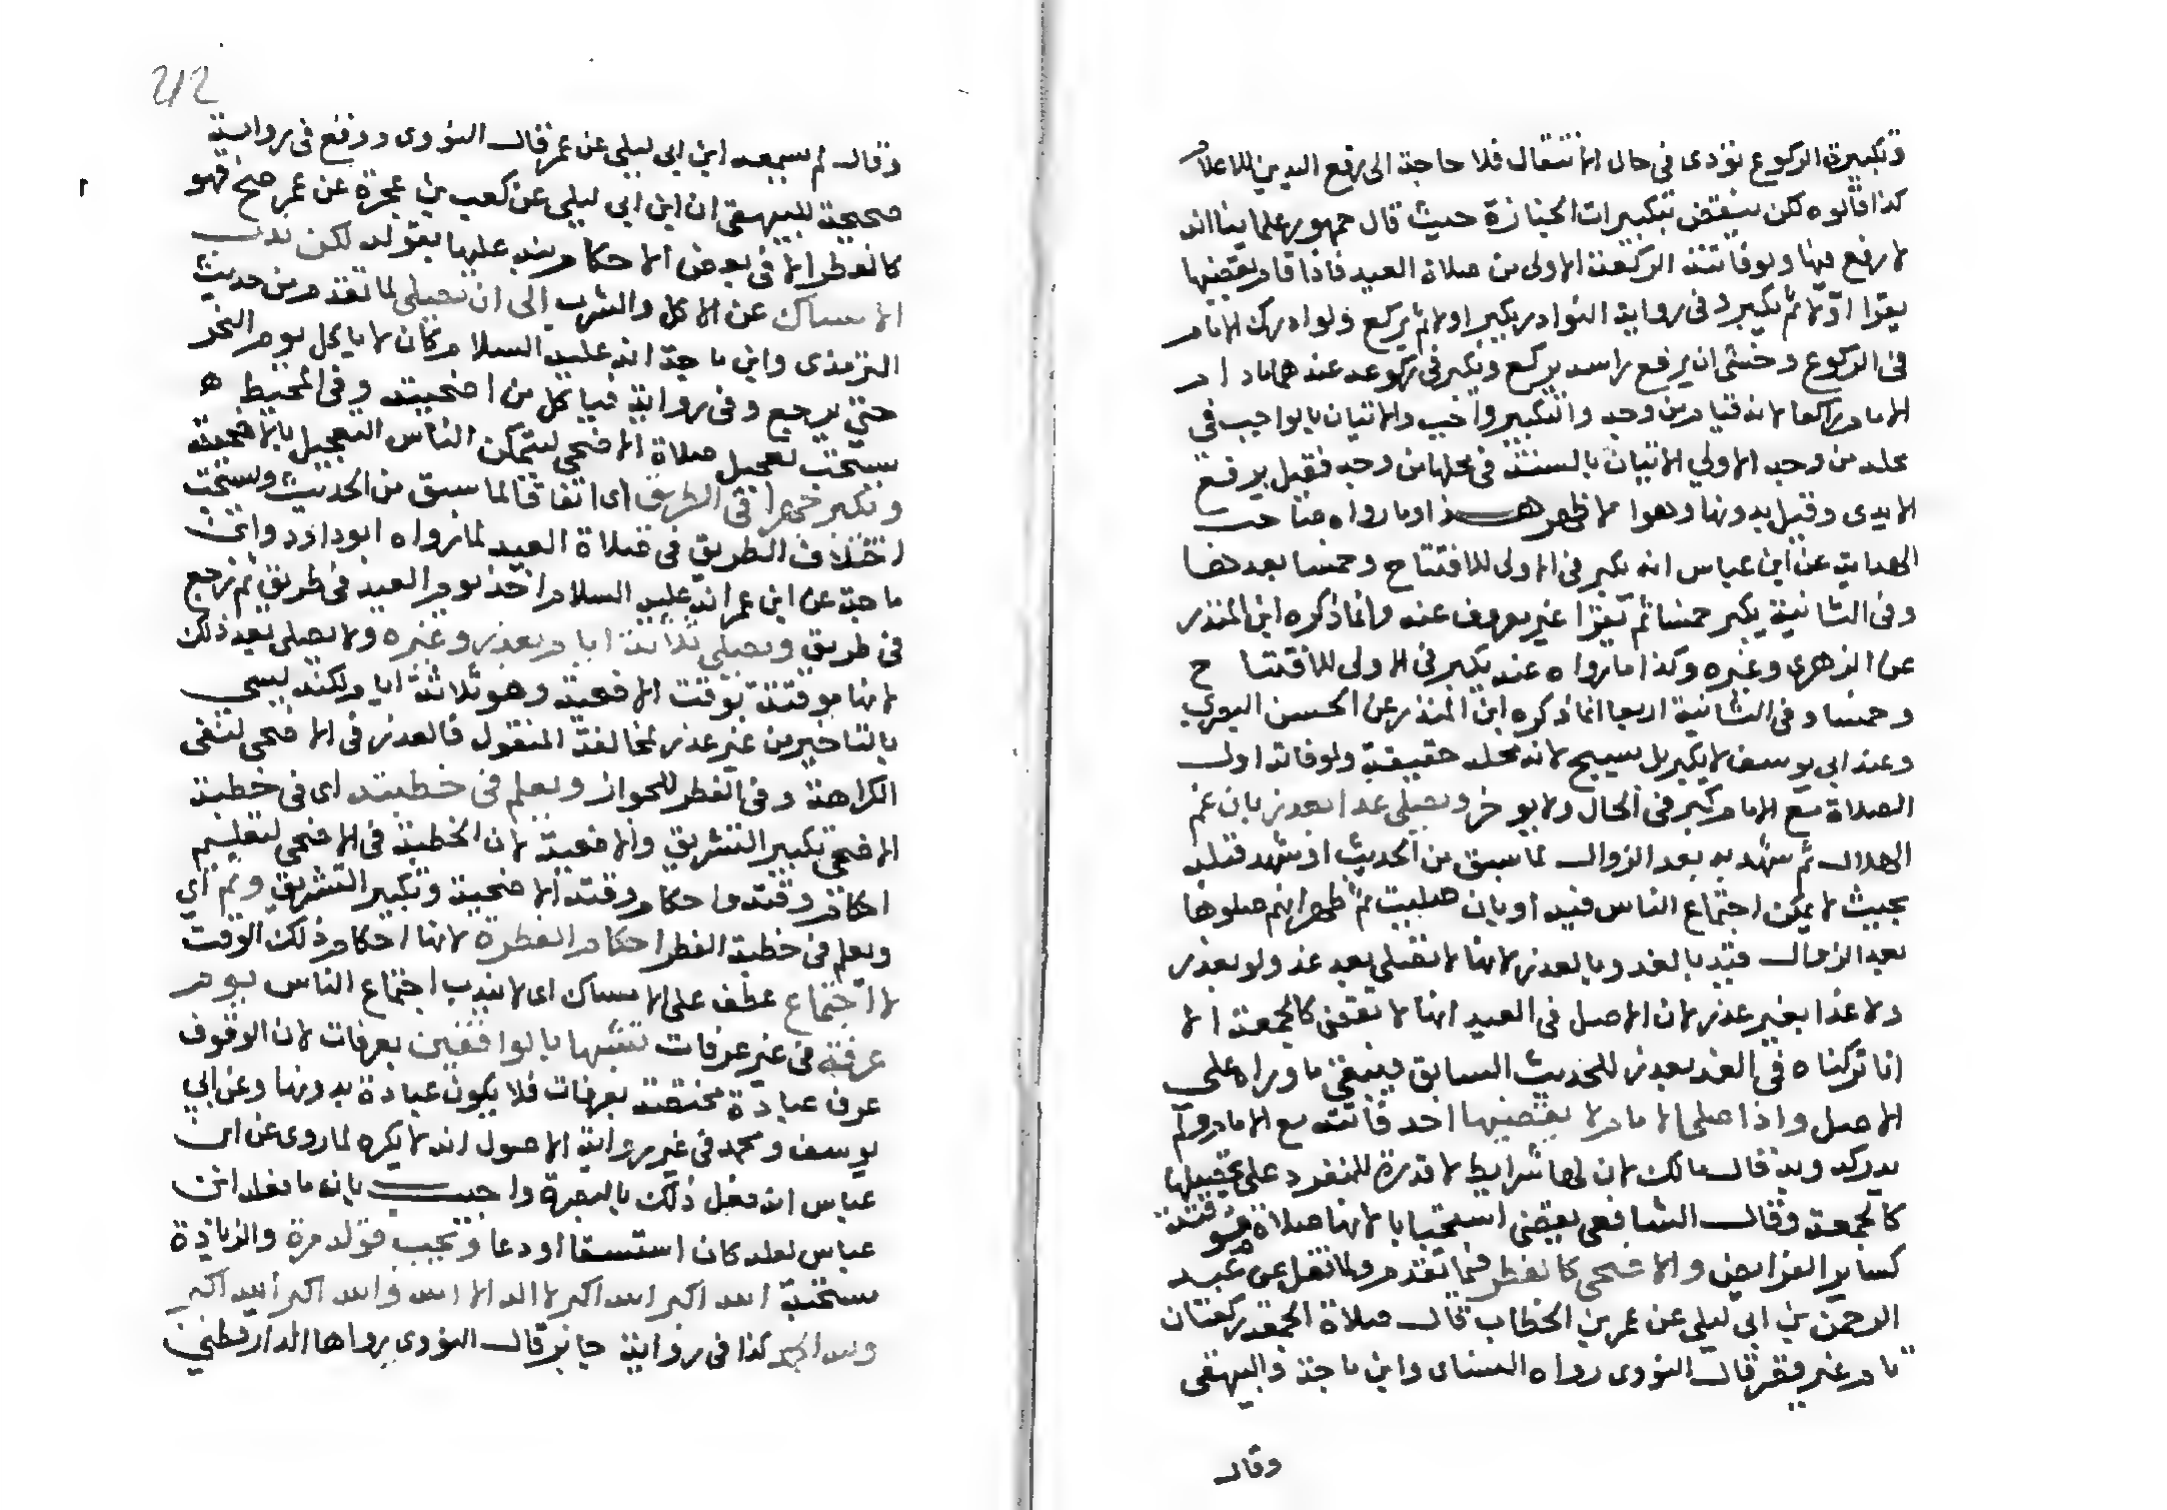 وتكبيرة الركوع تؤدى فى حال الانتقال فلا حاجة الى رفع اليدين للاعلام
كذا قالوه لكن ينتقض بتكبيرات الجنازة حيث قال جمهور علماينا انه
لا رفع فيها ولو فاتته الركعة الاولى من صلاة العيد فاذا قام يقضيها
يقرا اولا ثم يكبر وفى رواية النوادر يكبر اولا ثم يركع ولو ادرك الامام
فى الركوع وخشى ان يرفع راسه يركع ويكبر فى ركوعه عندهما ما دام
الامام راكعا لانه قيام من وجه والتكبير واجب والاتيان بالواجب فى
محله من وجه الاولي الاتيان بالسنة فى محلها من وجه فقيل يرفع
الايدى وقيل بدونها وهو الاظهر هذا وما رواه صاحب
الهداية عن ابن عباس انه يكبر فى الاولى للافتتاح وخمسا بعدها
وفى الثانية يكبر خمسا ثم يقرا غير معروف عنه وانما ذكره ابن المنذر
عن الزهرى وغيره وكذا ما رواه عنه يكبر فى الاولى للافتتاح
وخمسا وفى الثانية اربعا انما ذكره ابن المنذر عن الحسن البصري
وعند ابي يوسف لا يكبر بل يسبح لانه محله حقيقة ولو فاته اول
الصلاة مع الامام كبر فى الحال ولا يوخر ويصلى غدا بعذر بان غم
الهلال ثم شهد به بعد الزوال لما سبق من الحديث او شهد قبله
بحيث لا يمكن اجتماع الناس فيه او بان صليت ثم ظهر انهم صلوها
بعد الزوال قيد بالغد وبالعذر لانها لا تصلى بعد غد ولو بعذر
ولا غدا بغير عذر لان الاصل فى العيد انها لا تقضى كالجمعة الا
انا تركناه فى الغد بعذر للحديث السابق فيبقى ما وراه على
الاصل واذا صلى الامام لا يقضيها احد فاتته مع الامام ولم
يدركه وبه قال مالك لان لها شرايط لا قدرة للمنفرد على تحصيلها
كالجمعة وقال الشافعى يقضى استحبابا لانها صلاة موقتة
كساير الفرايض والاضحى كالفطر فيما تقدم ولما نقل عن عبد
الرحمن بن ابى ليلى عن عمر بن الخطاب قال صلاة الجمعة ركعتان
تمام غير قصر قال النووى رواه النساى وابن ماجة والبيهقى
وقال
212
وقال لم يسمعه ابن ابى ليلى عن عمر قال النووى ووقع فى رواية
صحيحة للبيهقى ان ابن ابى ليلى عن كعب بن عجرة عن عمر صح فهو
كالفطر الا فى بعض الاحكام نبه عليها بقوله لكن ندب
الامساك عن الاكل والشرب الى ان يصلى لما تقدم من حديث
الترمذى وابن ماجة انه عليه السلام كان لا ياكل يوم النحر
حتى يرجع وفى رواية فياكل من اضحيته وفى المحيط ه
يستحب تعجيل صلاة الاضحى ليتمكن الناس التعجيل بالاضحية
ويكبر جهرا فى الطريق اى اتفاقا لما سبق من الحديث ويستحب
اختلاف الطريق فى صلاة العيد لما رواه ابو داود وابن
ماجة عن ابن عمر انه عليه السلام اخذ يوم العيد فى طريق ثم رجع
فى طريق ويصلى ثلاثة ايام بعذر وغيره ولا يصلى بعد ذلك
لانها موقتة بوقت الاضحية وهو ثلاثة ايام ولكنه يسى
بالتاخير من غير عذر لمخالفة المنقول فالعذر فى الاضحى لنفى
الكراهة وفى الفطر للجواز ويعلم فى خطبته اى فى خطبة
الاضحى تكبير التشريق والاضحية لان الخطبة فى الاضحى لتعليم
احكام وقته واحكام وقته الاضحية وتكبير التشريق وثم اى
ويعلم فى خطبة الفطر احكام الفطرة لانها احكام ذلك الوقت
لا اجتماع عطف على الامساك اى لا يندب اجتماع الناس يوم
عرفة فى غير عرفات تشبها بالواقفين بعرفات لان الوقوف
عرف عبادة مختصة بعرفات فلا يكون عبادة بدونها وعن ابي
يوسف ومحمد فى غير رواية الاصول انه لا يكره لما روى عن ابن
عباس انه فعل ذلك بالبصرة واجيب بانه ما فعله ابن
عباس لعله كان استسقا او دعا وتجب قوله مرة والزيادة
مستحبة الله اكبر الله اكبر لا اله الا الله والله اكبر الله اكبر
ولله الحمد كذا فى رواية جابر قال النووى رواها الدارقطني